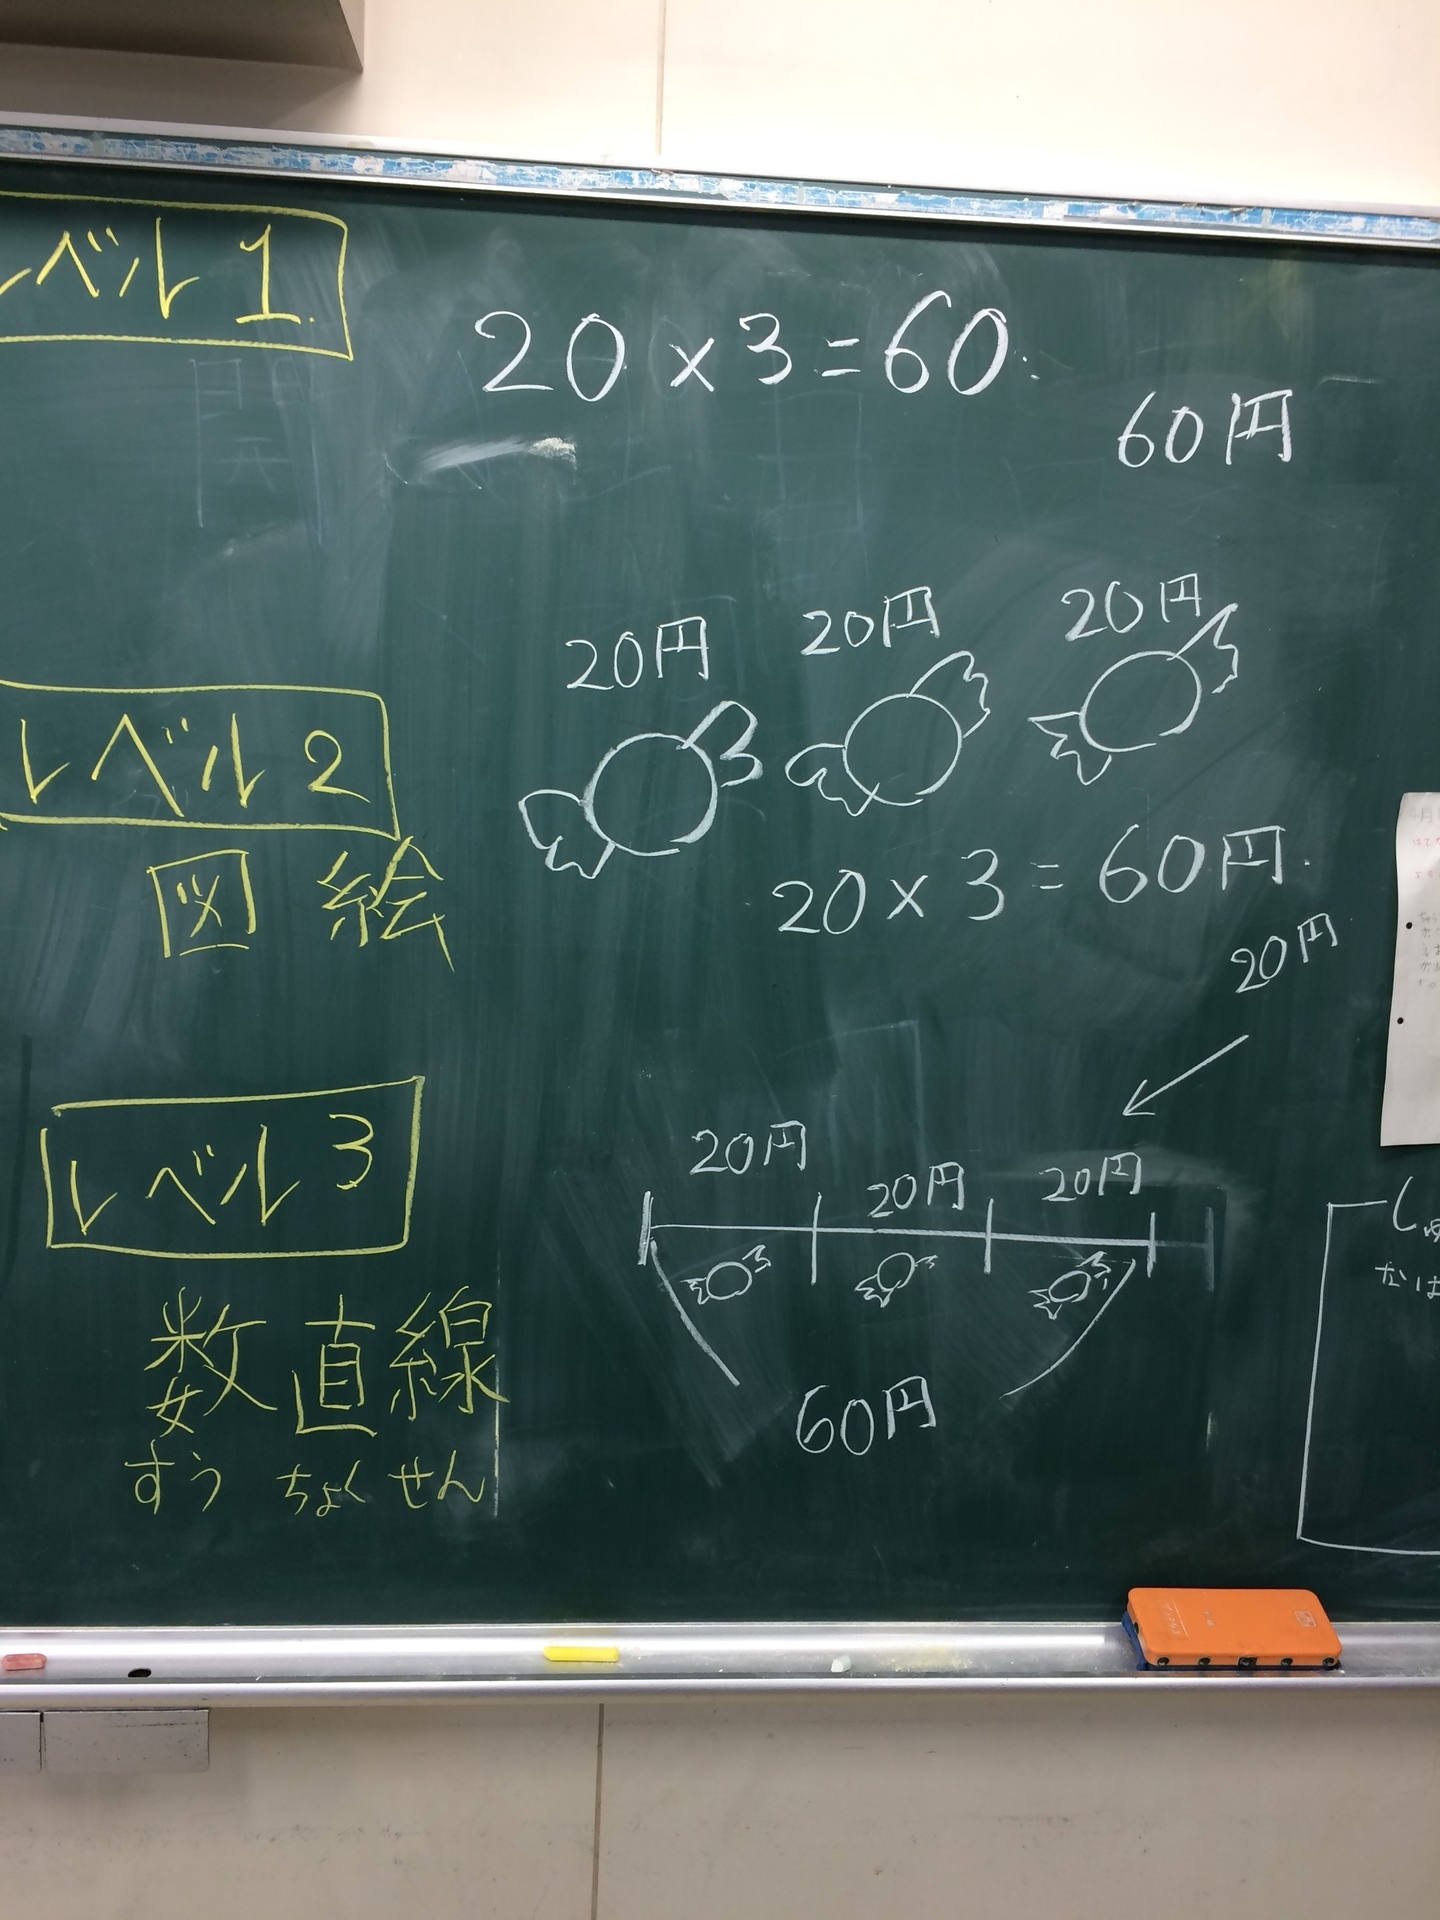 レベル1.
20×3=60.
60円
20円 20円 20円
レベル2
図 絵
20×3=60円.
20円
レベル3
20円 20円 20円
数直線
すう ちょく せん
60円